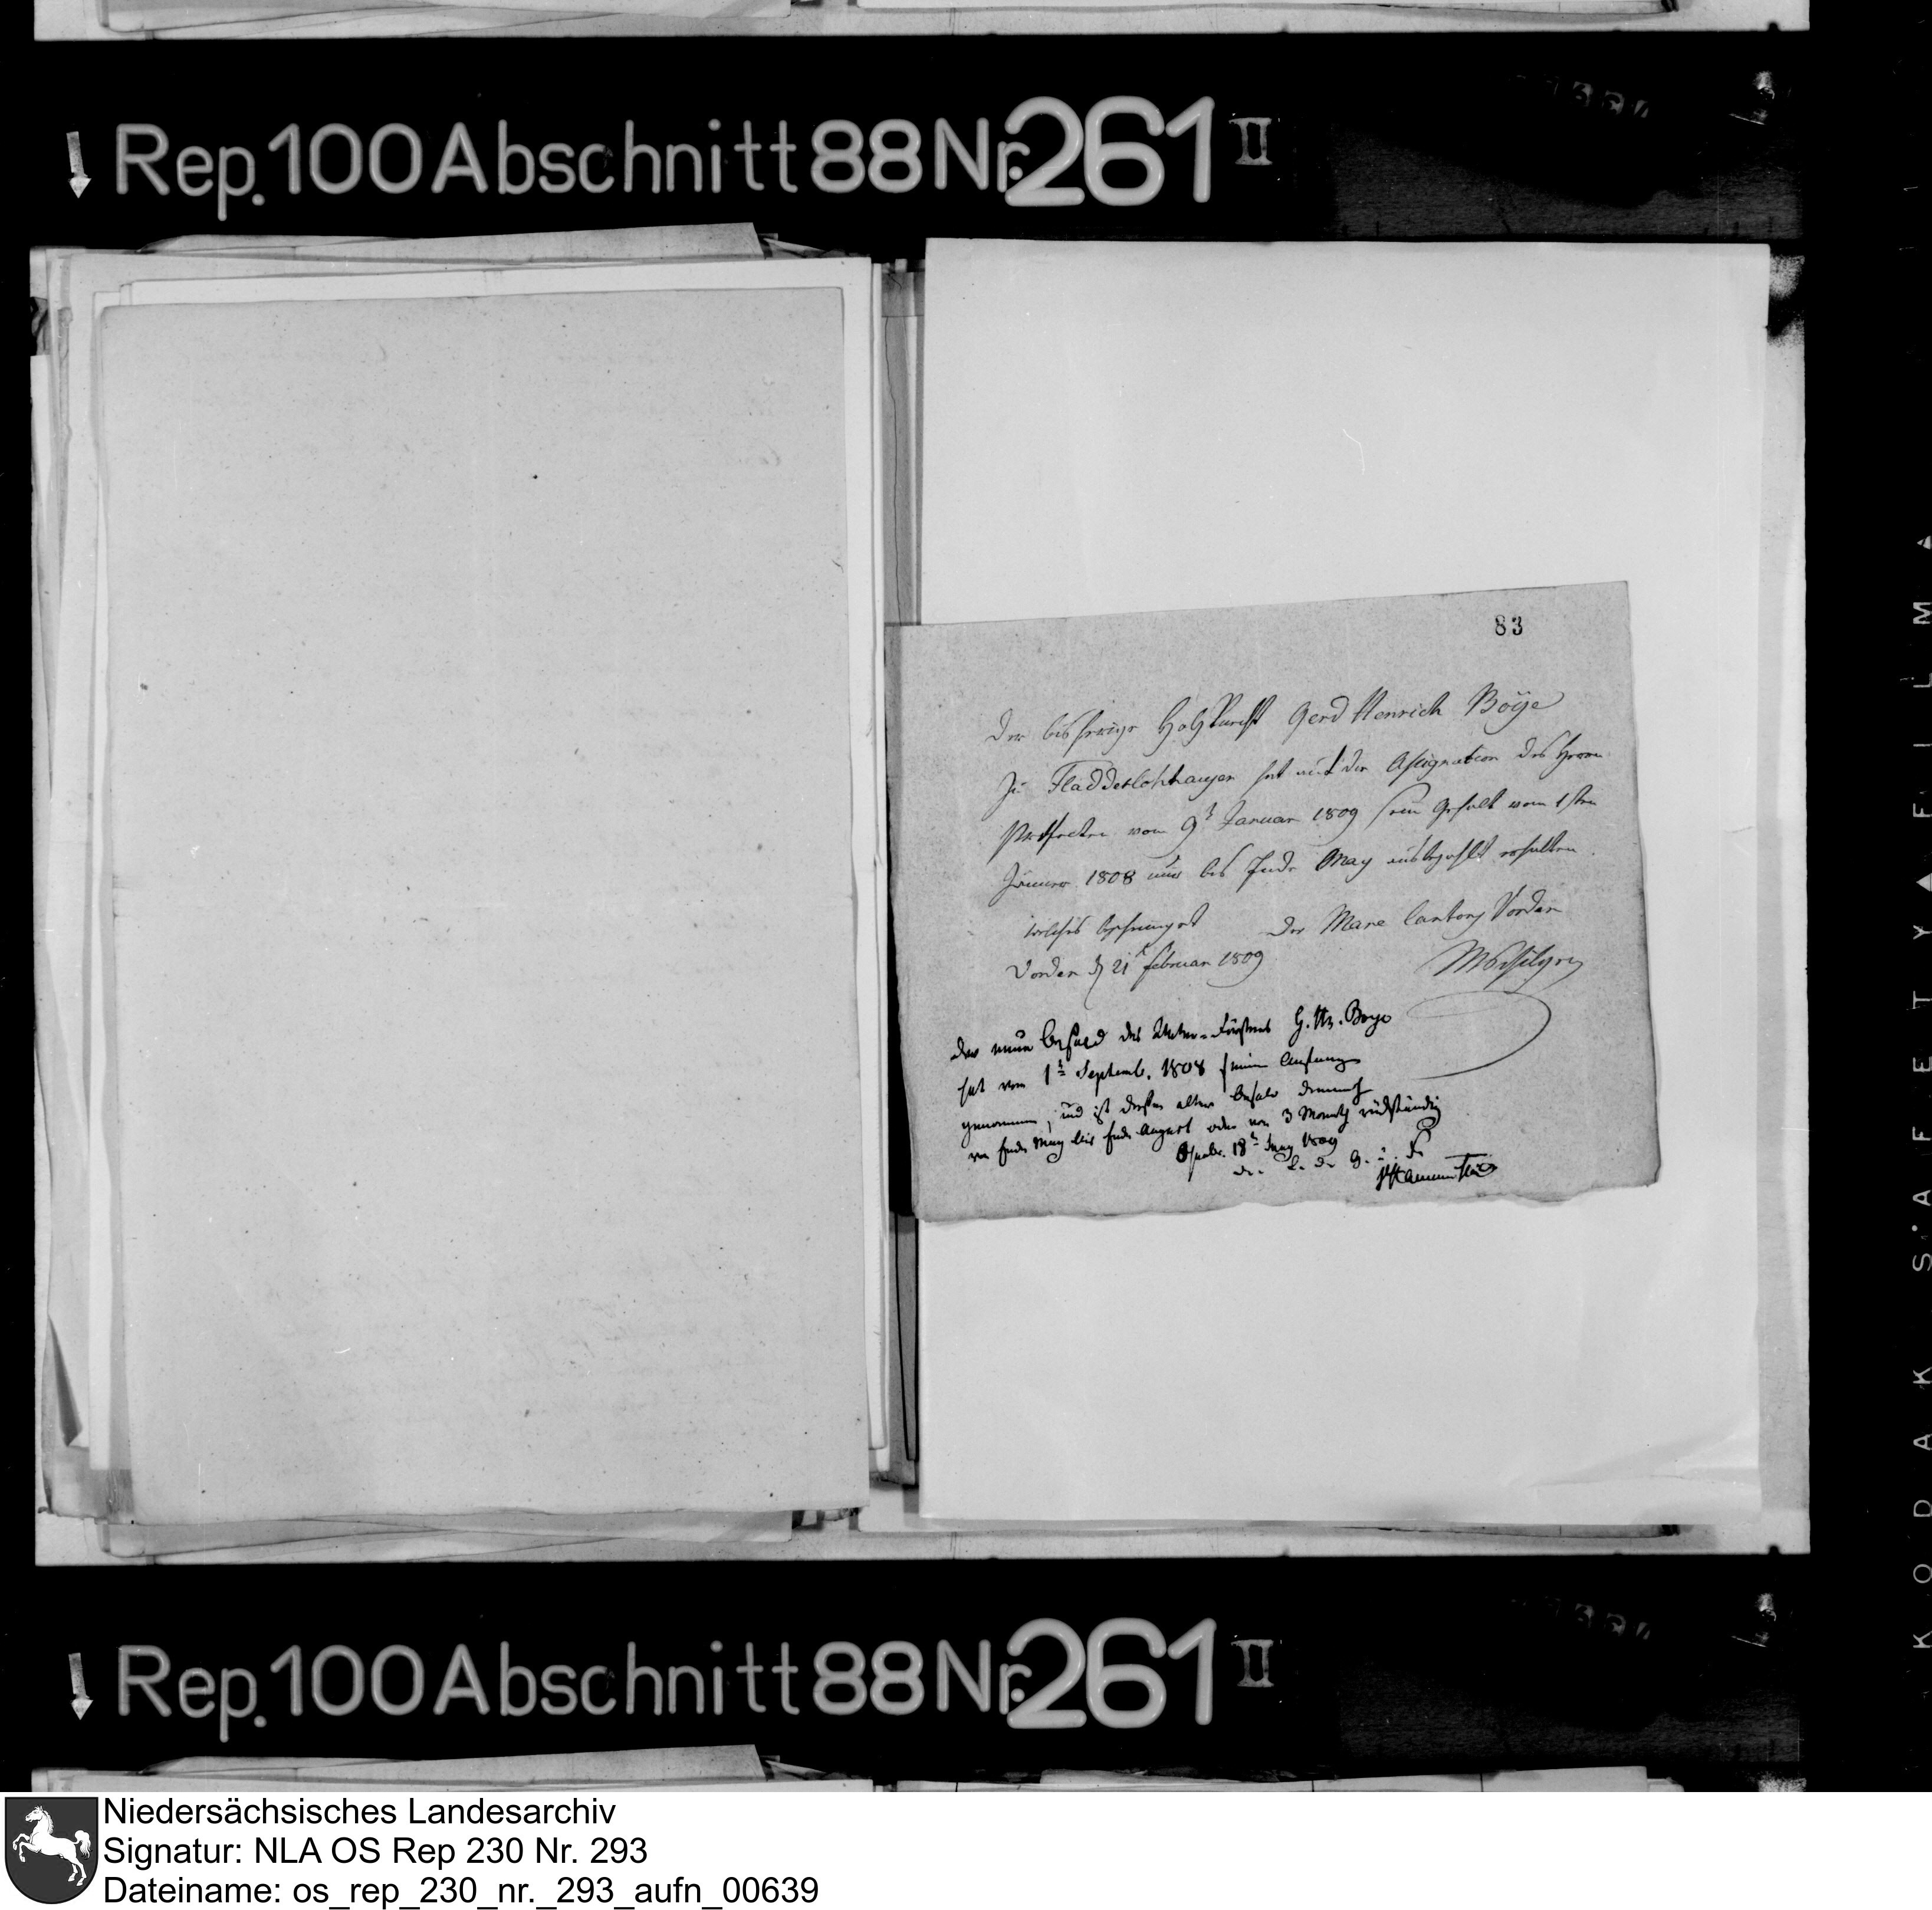 Rep. 100 Abschnitt 88 Nr. 261 II
83
Der bisherige Holzknecht Gerd Henrich Böye
zu Fladderlohhausen hat auf die Assignation des Herrn
Präfecten vom 9t Januar 1809 sein Gehalt vom 1sten
Januar 1808 nur bis Ende May ausbezahlt erhalten.
welches bescheiniget Der Maire Cantons Vorden
Vorden d 21t Februar 1809
Der neue Gehalt des Unter-Försters G. Hr. Boye
hat vom 1t Septemb. 1808 seinen Anfang
genommen, und ist dessen alter Gehalt demnach
von Ende May bis Ende August oder von 3 Monath rückständig
Osnabr. 18t 1809
Rep. 100 Abschnitt 88 Nr. 261 II
KODAK SAFETY FILM
Niedersächsisches Landesarchiv
Signatur: NLA OS Rep 230 Nr. 293
Dateiname: os_rep_230_nr._293_aufn_00639